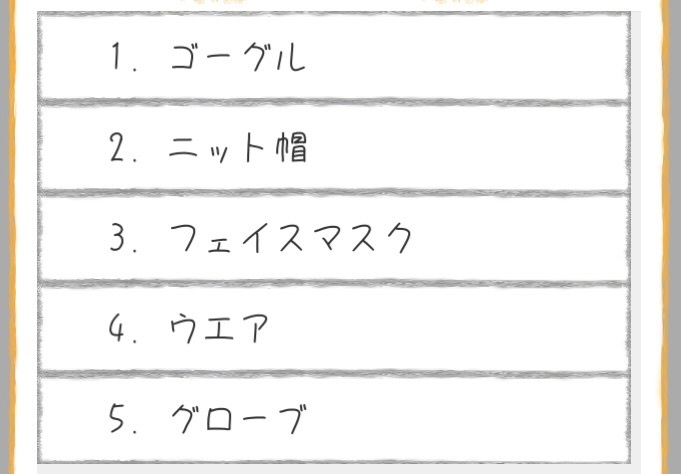 1. ゴーグル
2. ニット帽
3. フェイスマスク
4. ウエア
5. グローブ